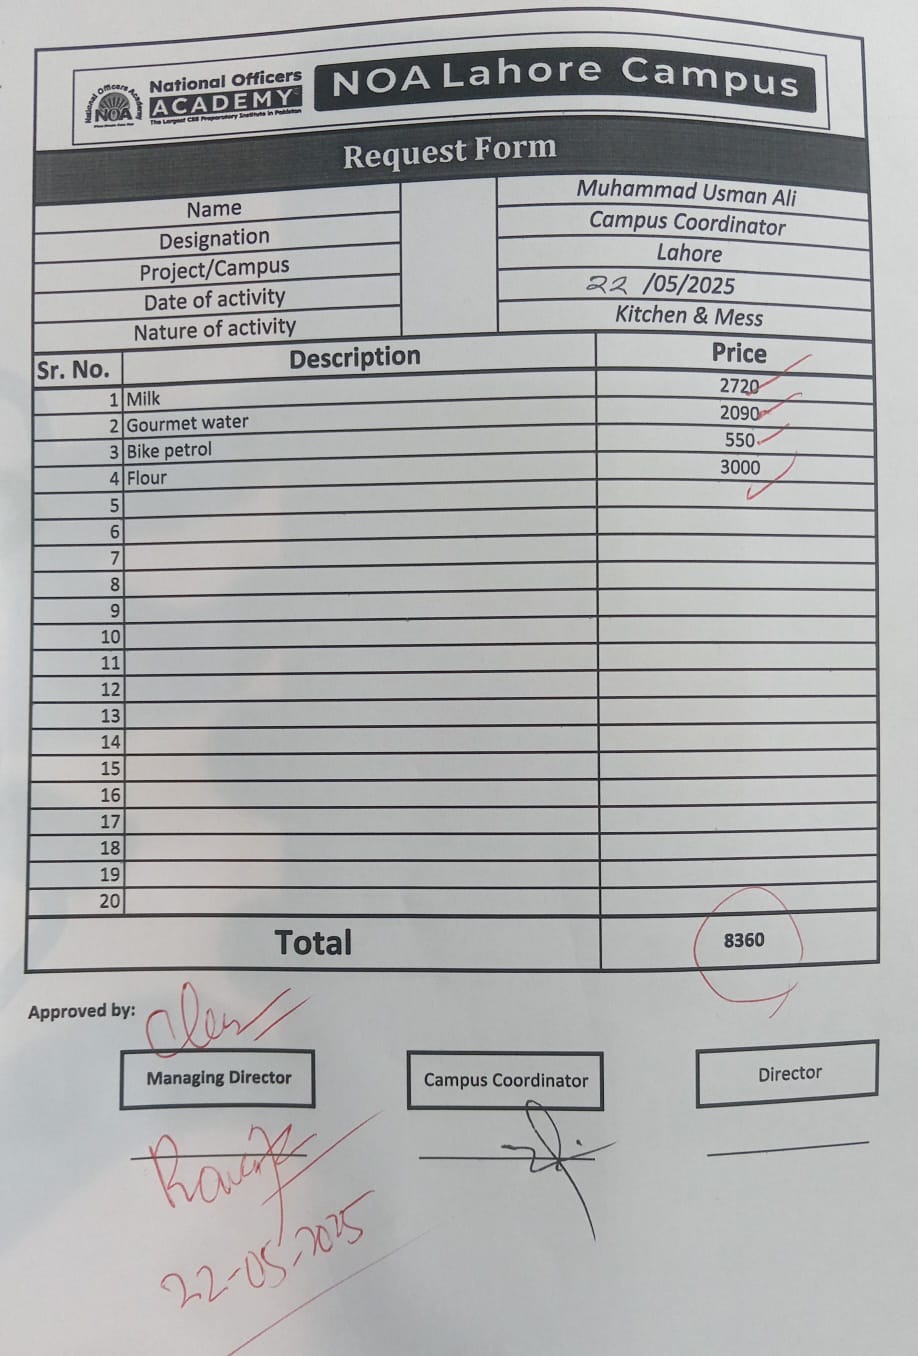 National Officers Academy
NOA
National Officers
ACADEMY
The Largest CSS Preparatory Institute in Pakistan
NOA Lahore Campus
Request Form
Name Muhammad Usman Ali
Designation Campus Coordinator
Project/Campus Lahore
Date of activity 22 /05/2025
Nature of activity Kitchen & Mess
Sr. No. Description Price
1 Milk 2720
2 Gourmet water 2090
3 Bike petrol 550
4 Flour 3000
5
6
7
8
9
10
11
12
13
14
15
16
17
18
19
20
Total 8360
Approved by:
Managing Director Campus Coordinator Director
22-05-2025